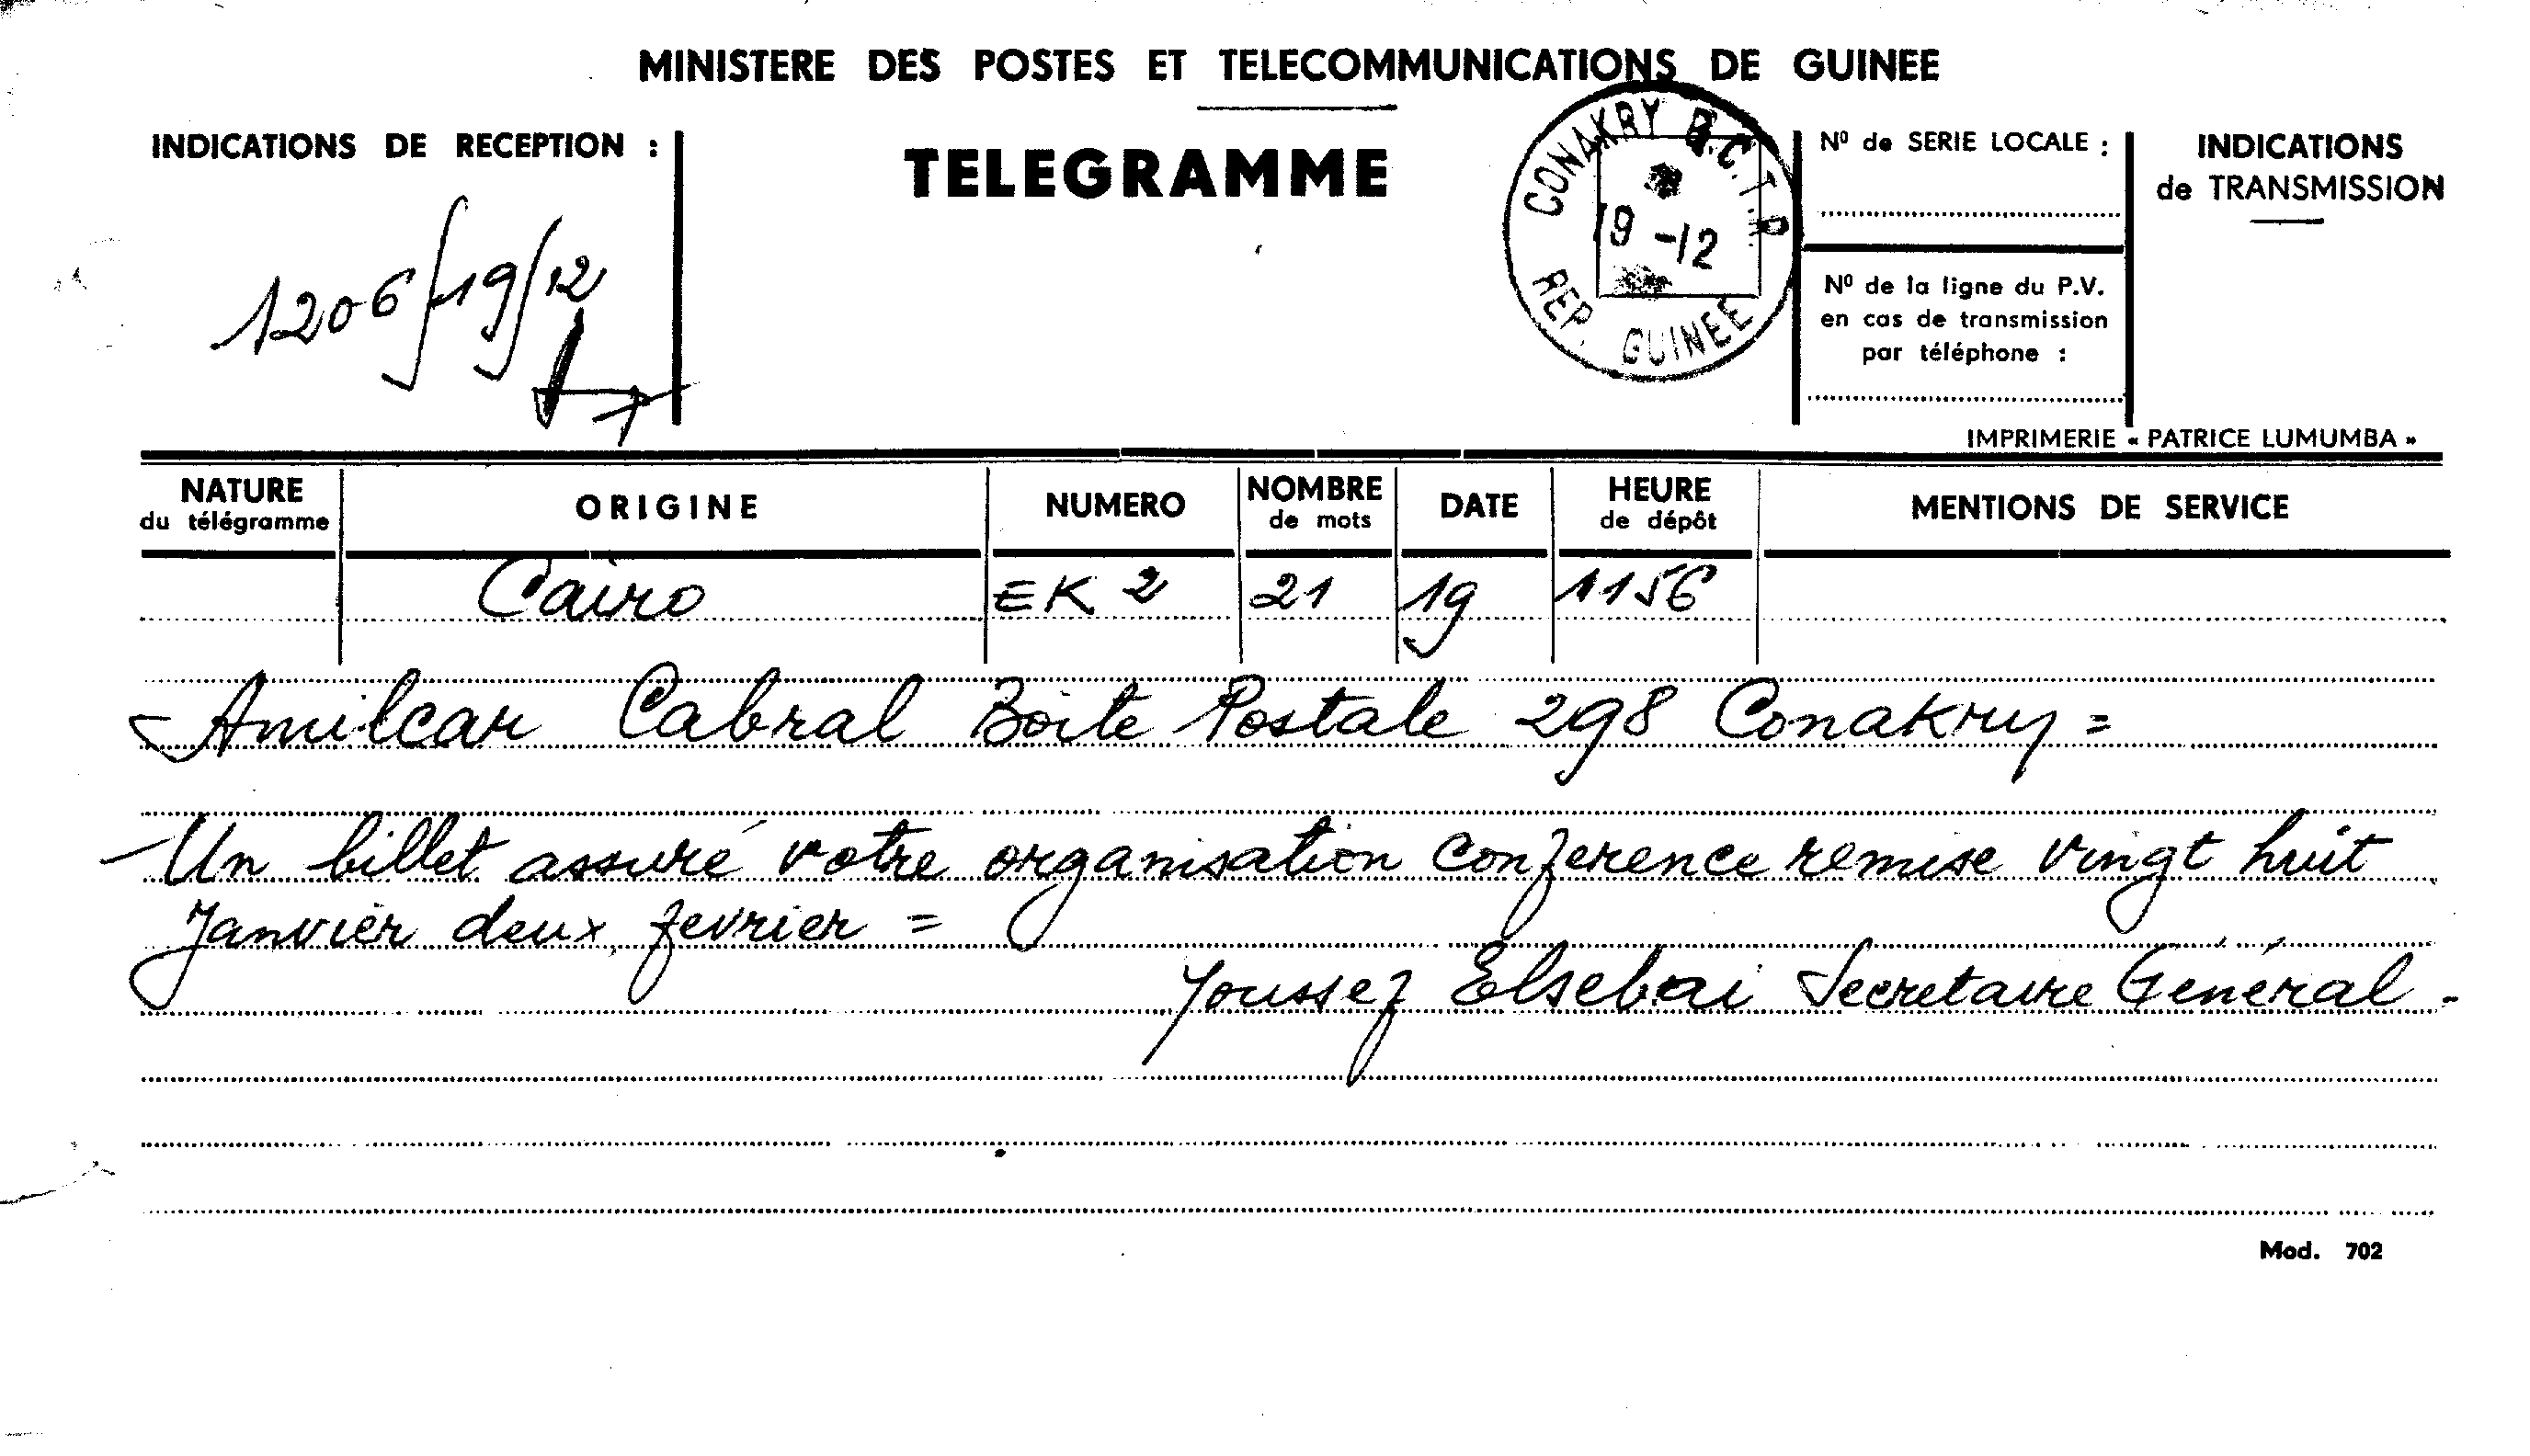 MINISTERE DES POSTES ET TELECOMMUNICATIONS DE GUINEE
INDICATIONS DE RECEPTION :
1206/19/12
TELEGRAMME
CONAKRY R.C.T.P
19 -12
REP. GUINEE
Nº de SERIE LOCALE :
Nº de la ligne du P.V.
en cas de transmission
par téléphone :
INDICATIONS
de TRANSMISSION
IMPRIMERIE « PATRICE LUMUMBA »
NATURE du télégramme ORIGINE NUMERO NOMBRE de mots DATE HEURE de dépôt MENTIONS DE SERVICE
Cairo EK 2 21 19 1156
Amilcar Cabral Boite Postale 298 Conakry =
Un billet assuré votre organisation conference remise vingt huit
Janvier deux fevrier =
Youssef Elsebai Secretaire Général.
Mod. 702